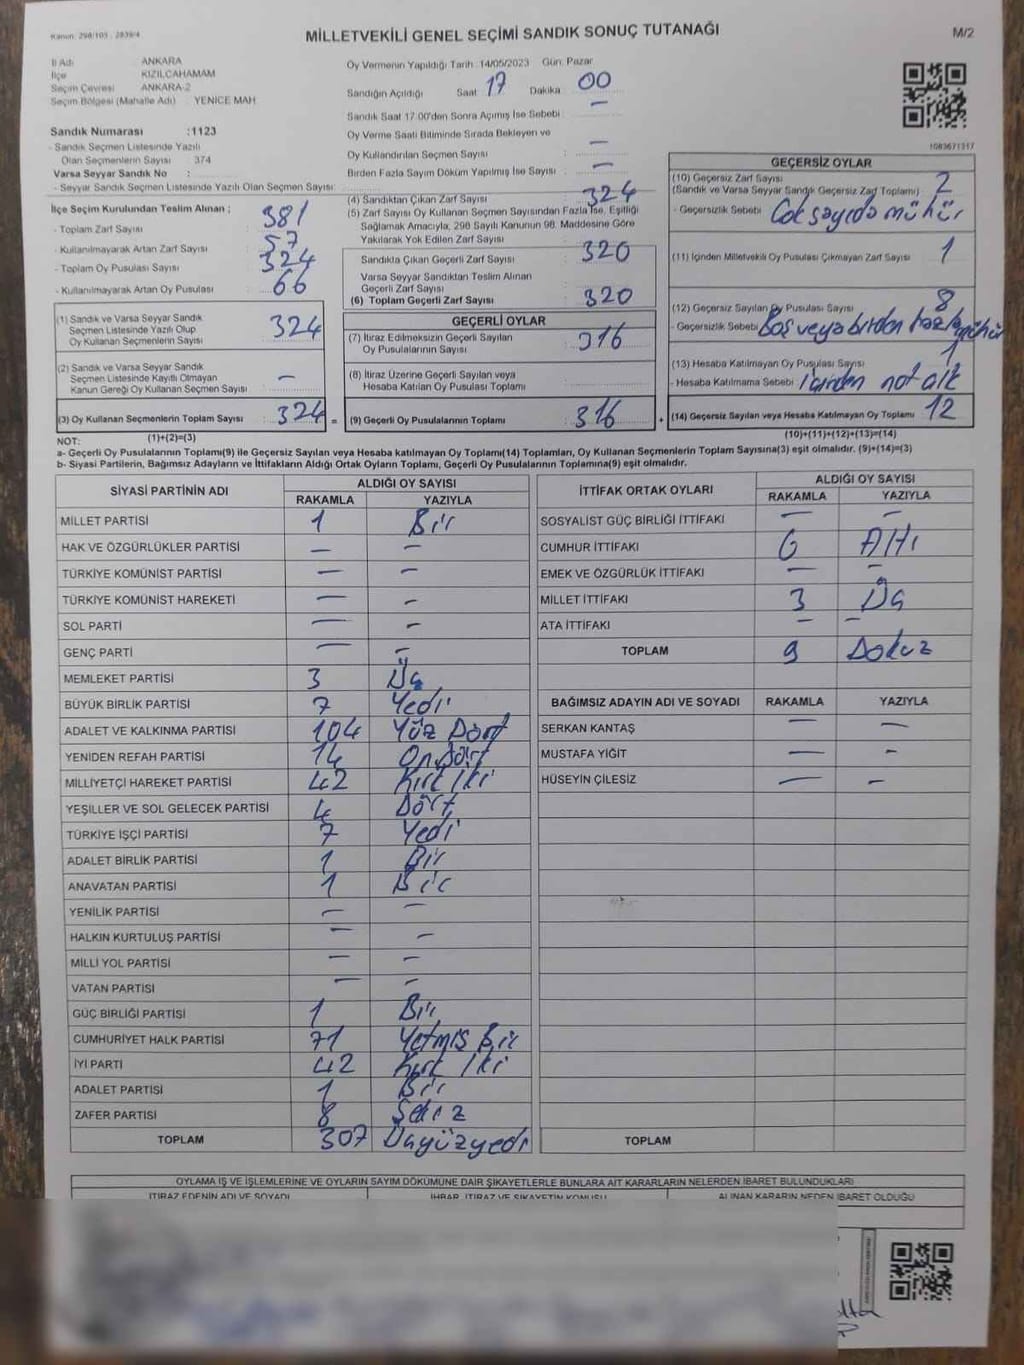 Kanun: 298/105 - 2839/4
MİLLETVEKİLİ GENEL SEÇİMİ SANDIK SONUÇ TUTANAĞI
M/2
İl Adı ANKARA
İlçe KIZILCAHAMAM
Seçim Çevresi ANKARA-2
Seçim Bölgesi (Mahalle Adı) : YENİCE MAH
Sandık Numarası :1123
- Sandık Seçmen Listesinde Yazılı
Olan Seçmenlerin Sayısı : 374
Varsa Seyyar Sandık No :
- Seyyar Sandık Seçmen Listesinde Yazılı Olan Seçmen Sayısı:
Oy Vermenin Yapıldığı Tarih :14/05/2023 Gün: Pazar
Sandığın Açıldığı Saat 17 Dakika 00
Sandık Saat 17.00'den Sonra Açılmış İse Sebebi : —
Oy Verme Saati Bitiminde Sırada Bekleyen ve
Oy Kullandırılan Seçmen Sayısı : —
Birden Fazla Sayım Döküm Yapılmış İse Sayısı : —
1083671317
İlçe Seçim Kurulundan Teslim Alınan ;
- Toplam Zarf Sayısı : 381
- Kullanılmayarak Artan Zarf Sayısı : 57
- Toplam Oy Pusulası Sayısı : 324
- Kullanılmayarak Artan Oy Pusulası : 66
(1) Sandık ve Varsa Seyyar Sandık
Seçmen Listesinde Yazılı Olup
Oy Kullanan Seçmenlerin Sayısı : 324
(2) Sandık ve Varsa Seyyar Sandık
Seçmen Listesinde Kayıtlı Olmayan
Kanun Gereği Oy Kullanan Seçmen Sayısı : —
(3) Oy Kullanan Seçmenlerin Toplam Sayısı : 324 =
(4) Sandıktan Çıkan Zarf Sayısı : 324
(5) Zarf Sayısı Oy Kullanan Seçmen Sayısından Fazla İse, Eşitliği
Sağlamak Amacıyla, 298 Sayılı Kanunun 98. Maddesine Göre
Yakılarak Yok Edilen Zarf Sayısı :
Sandıkta Çıkan Geçerli Zarf Sayısı : 320
Varsa Seyyar Sandıktan Teslim Alınan
Geçerli Zarf Sayısı :
(6) Toplam Geçerli Zarf Sayısı : 320
GEÇERLİ OYLAR
(7) İtiraz Edilmeksizin Geçerli Sayılan
Oy Pusulalarının Sayısı : 316
(8) İtiraz Üzerine Geçerli Sayılan veya
Hesaba Katılan Oy Pusulası Toplamı :
(9) Geçerli Oy Pusulalarının Toplamı : 316 +
GEÇERSİZ OYLAR
(10) Geçersiz Zarf Sayısı
(Sandık ve Varsa Seyyar Sandık Geçersiz Zarf Toplamı) : 2
- Geçersizlik Sebebi : Çok sayıda mühür
(11) İçinden Milletvekili Oy Pusulası Çıkmayan Zarf Sayısı : 1
(12) Geçersiz Sayılan Oy Pusulası Sayısı : 8
- Geçersizlik Sebebi : Boş veya birden fazla mühür
(13) Hesaba Katılmayan Oy Pusulası Sayısı : 1
- Hesaba Katılmama Sebebi :
(14) Geçersiz Sayılan veya Hesaba Katılmayan Oy Toplamı : 12
NOT: (1)+(2)=(3) (10)+(11)+(12)+(13)=(14)
a- Geçerli Oy Pusulalarının Toplamı(9) ile Geçersiz Sayılan veya Hesaba katılmayan Oy Toplamı(14) Toplamları, Oy Kullanan Seçmenlerin Toplam Sayısına(3) eşit olmalıdır. (9)+(14)=(3)
b- Siyasi Partilerin, Bağımsız Adayların ve İttifakların Aldığı Ortak Oyların Toplamı, Geçerli Oy Pusulalarının Toplamına(9) eşit olmalıdır.
SİYASİ PARTİNİN ADI ALDIĞI OY SAYISI
RAKAMLA YAZIYLA
MİLLET PARTİSİ 1 Bir
HAK VE ÖZGÜRLÜKLER PARTİSİ — —
TÜRKİYE KOMÜNİST PARTİSİ — —
TÜRKİYE KOMÜNİST HAREKETİ — —
SOL PARTİ — —
GENÇ PARTİ — —
MEMLEKET PARTİSİ 3 Üç
BÜYÜK BİRLİK PARTİSİ 7 Yedi
ADALET VE KALKINMA PARTİSİ 104 Yüz Dört
YENİDEN REFAH PARTİSİ 14 On Dört
MİLLİYETÇİ HAREKET PARTİSİ 42 Kırk İki
YEŞİLLER VE SOL GELECEK PARTİSİ 4 Dört
TÜRKİYE İŞÇİ PARTİSİ 7 Yedi
ADALET BİRLİK PARTİSİ 1 Bir
ANAVATAN PARTİSİ 1 Bir
YENİLİK PARTİSİ — —
HALKIN KURTULUŞ PARTİSİ — —
MİLLİ YOL PARTİSİ — —
VATAN PARTİSİ — —
GÜÇ BİRLİĞİ PARTİSİ 1 Bir
CUMHURİYET HALK PARTİSİ 71 Yetmiş Bir
İYİ PARTİ 42 Kırk İki
ADALET PARTİSİ 1 Bir
ZAFER PARTİSİ 8 Sekiz
TOPLAM 307 Üçyüzyedi
İTTİFAK ORTAK OYLARI ALDIĞI OY SAYISI
RAKAMLA YAZIYLA
SOSYALİST GÜÇ BİRLİĞİ İTTİFAKI — —
CUMHUR İTTİFAKI 6 Altı
EMEK VE ÖZGÜRLÜK İTTİFAKI — —
MİLLET İTTİFAKI 3 Üç
ATA İTTİFAKI — —
TOPLAM 9 Dokuz
BAĞIMSIZ ADAYIN ADI VE SOYADI RAKAMLA YAZIYLA
SERKAN KANTAŞ — —
MUSTAFA YİĞİT — —
HÜSEYİN ÇİLESİZ — —
TOPLAM
OYLAMA İŞ VE İŞLEMLERİNE VE OYLARIN SAYIM DÖKÜMÜNE DAİR ŞİKAYETLERLE BUNLARA AİT KARARLARIN NELERDEN İBARET BULUNDUKLARI
İTİRAZ EDENİN ADI VE SOYADI İHBAR, İTİRAZ VE ŞİKAYETİN KONUSU ALINAN KARARIN NEDEN İBARET OLDUĞU